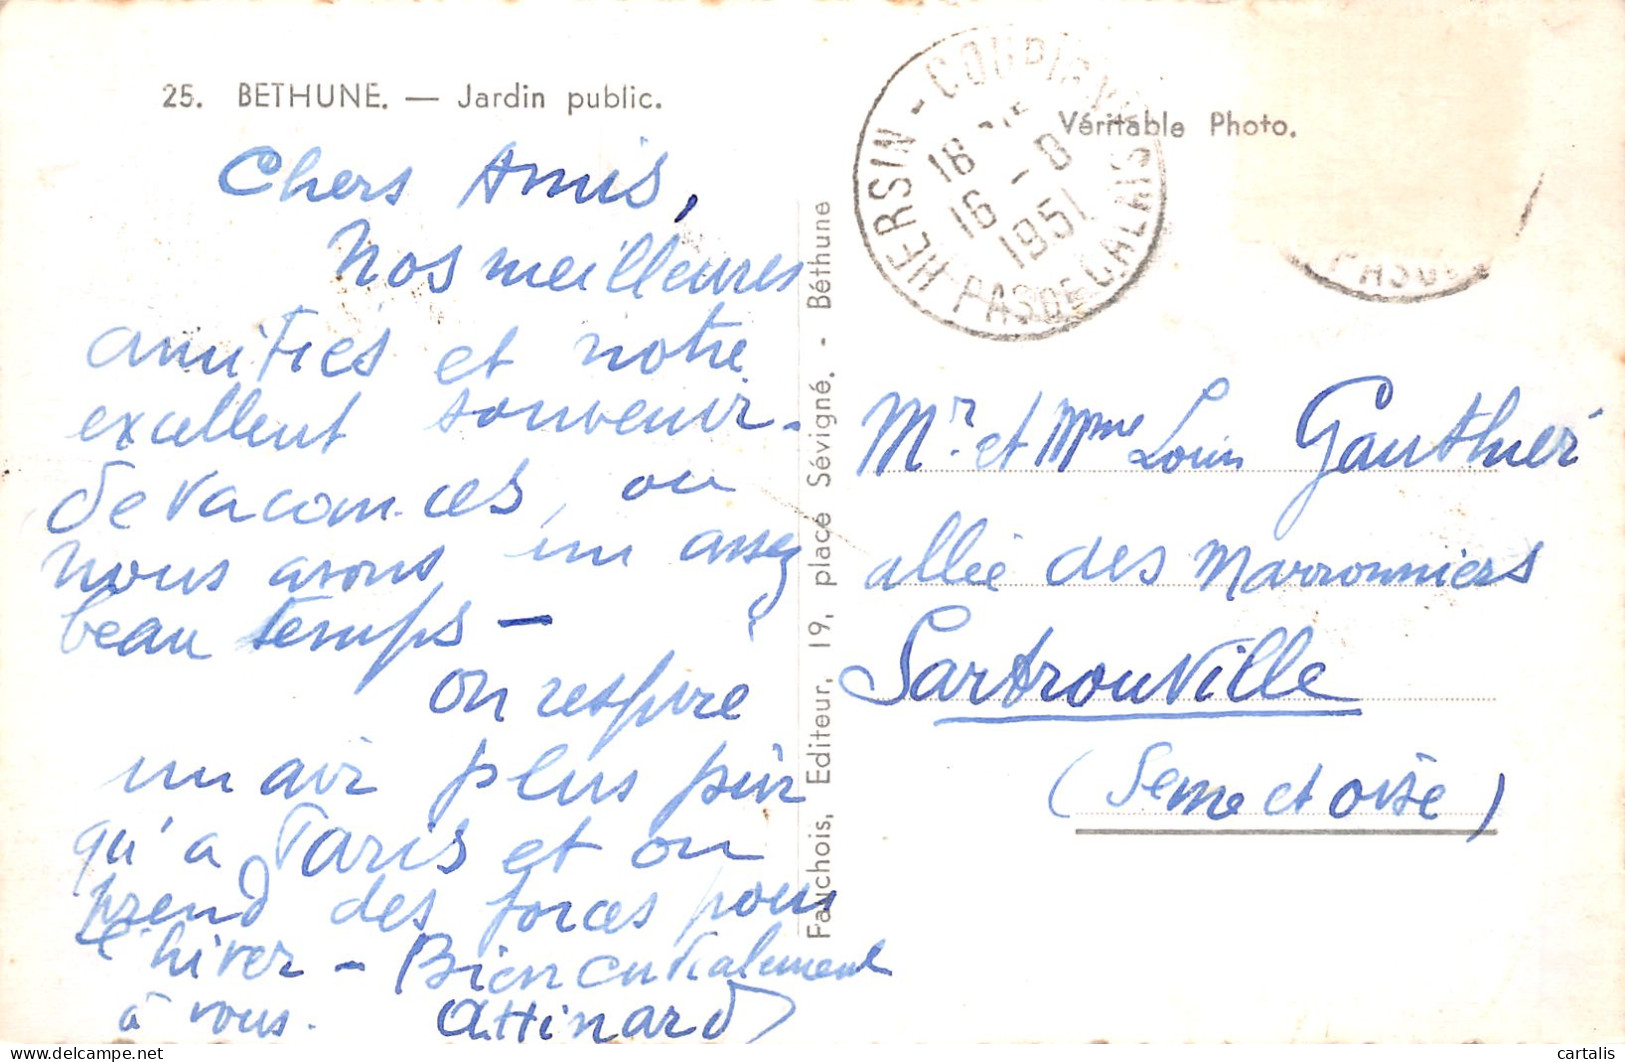 25. BETHUNE. — Jardin public.
Chers Amis,
Nos meilleures
amitiés et notre
excellent souvenir
de vacances, ou
nous avons un assez
beau temps —
on respire
un air plus pur
qu'a Paris et on
prend des forces pour
l'hiver — Bien cordialement
à vous.
Fauchois, Editeur, 19, place Sévigné. - Béthune
Véritable Photo.
HERSIN - COUPIGNY
PAS DE CALAIS
16 - 8
1951
PAS DE
Mr. et Mme Louis Gauthier
allée des Marronniers
Sartrouville
(Seine et oise)
cartalis